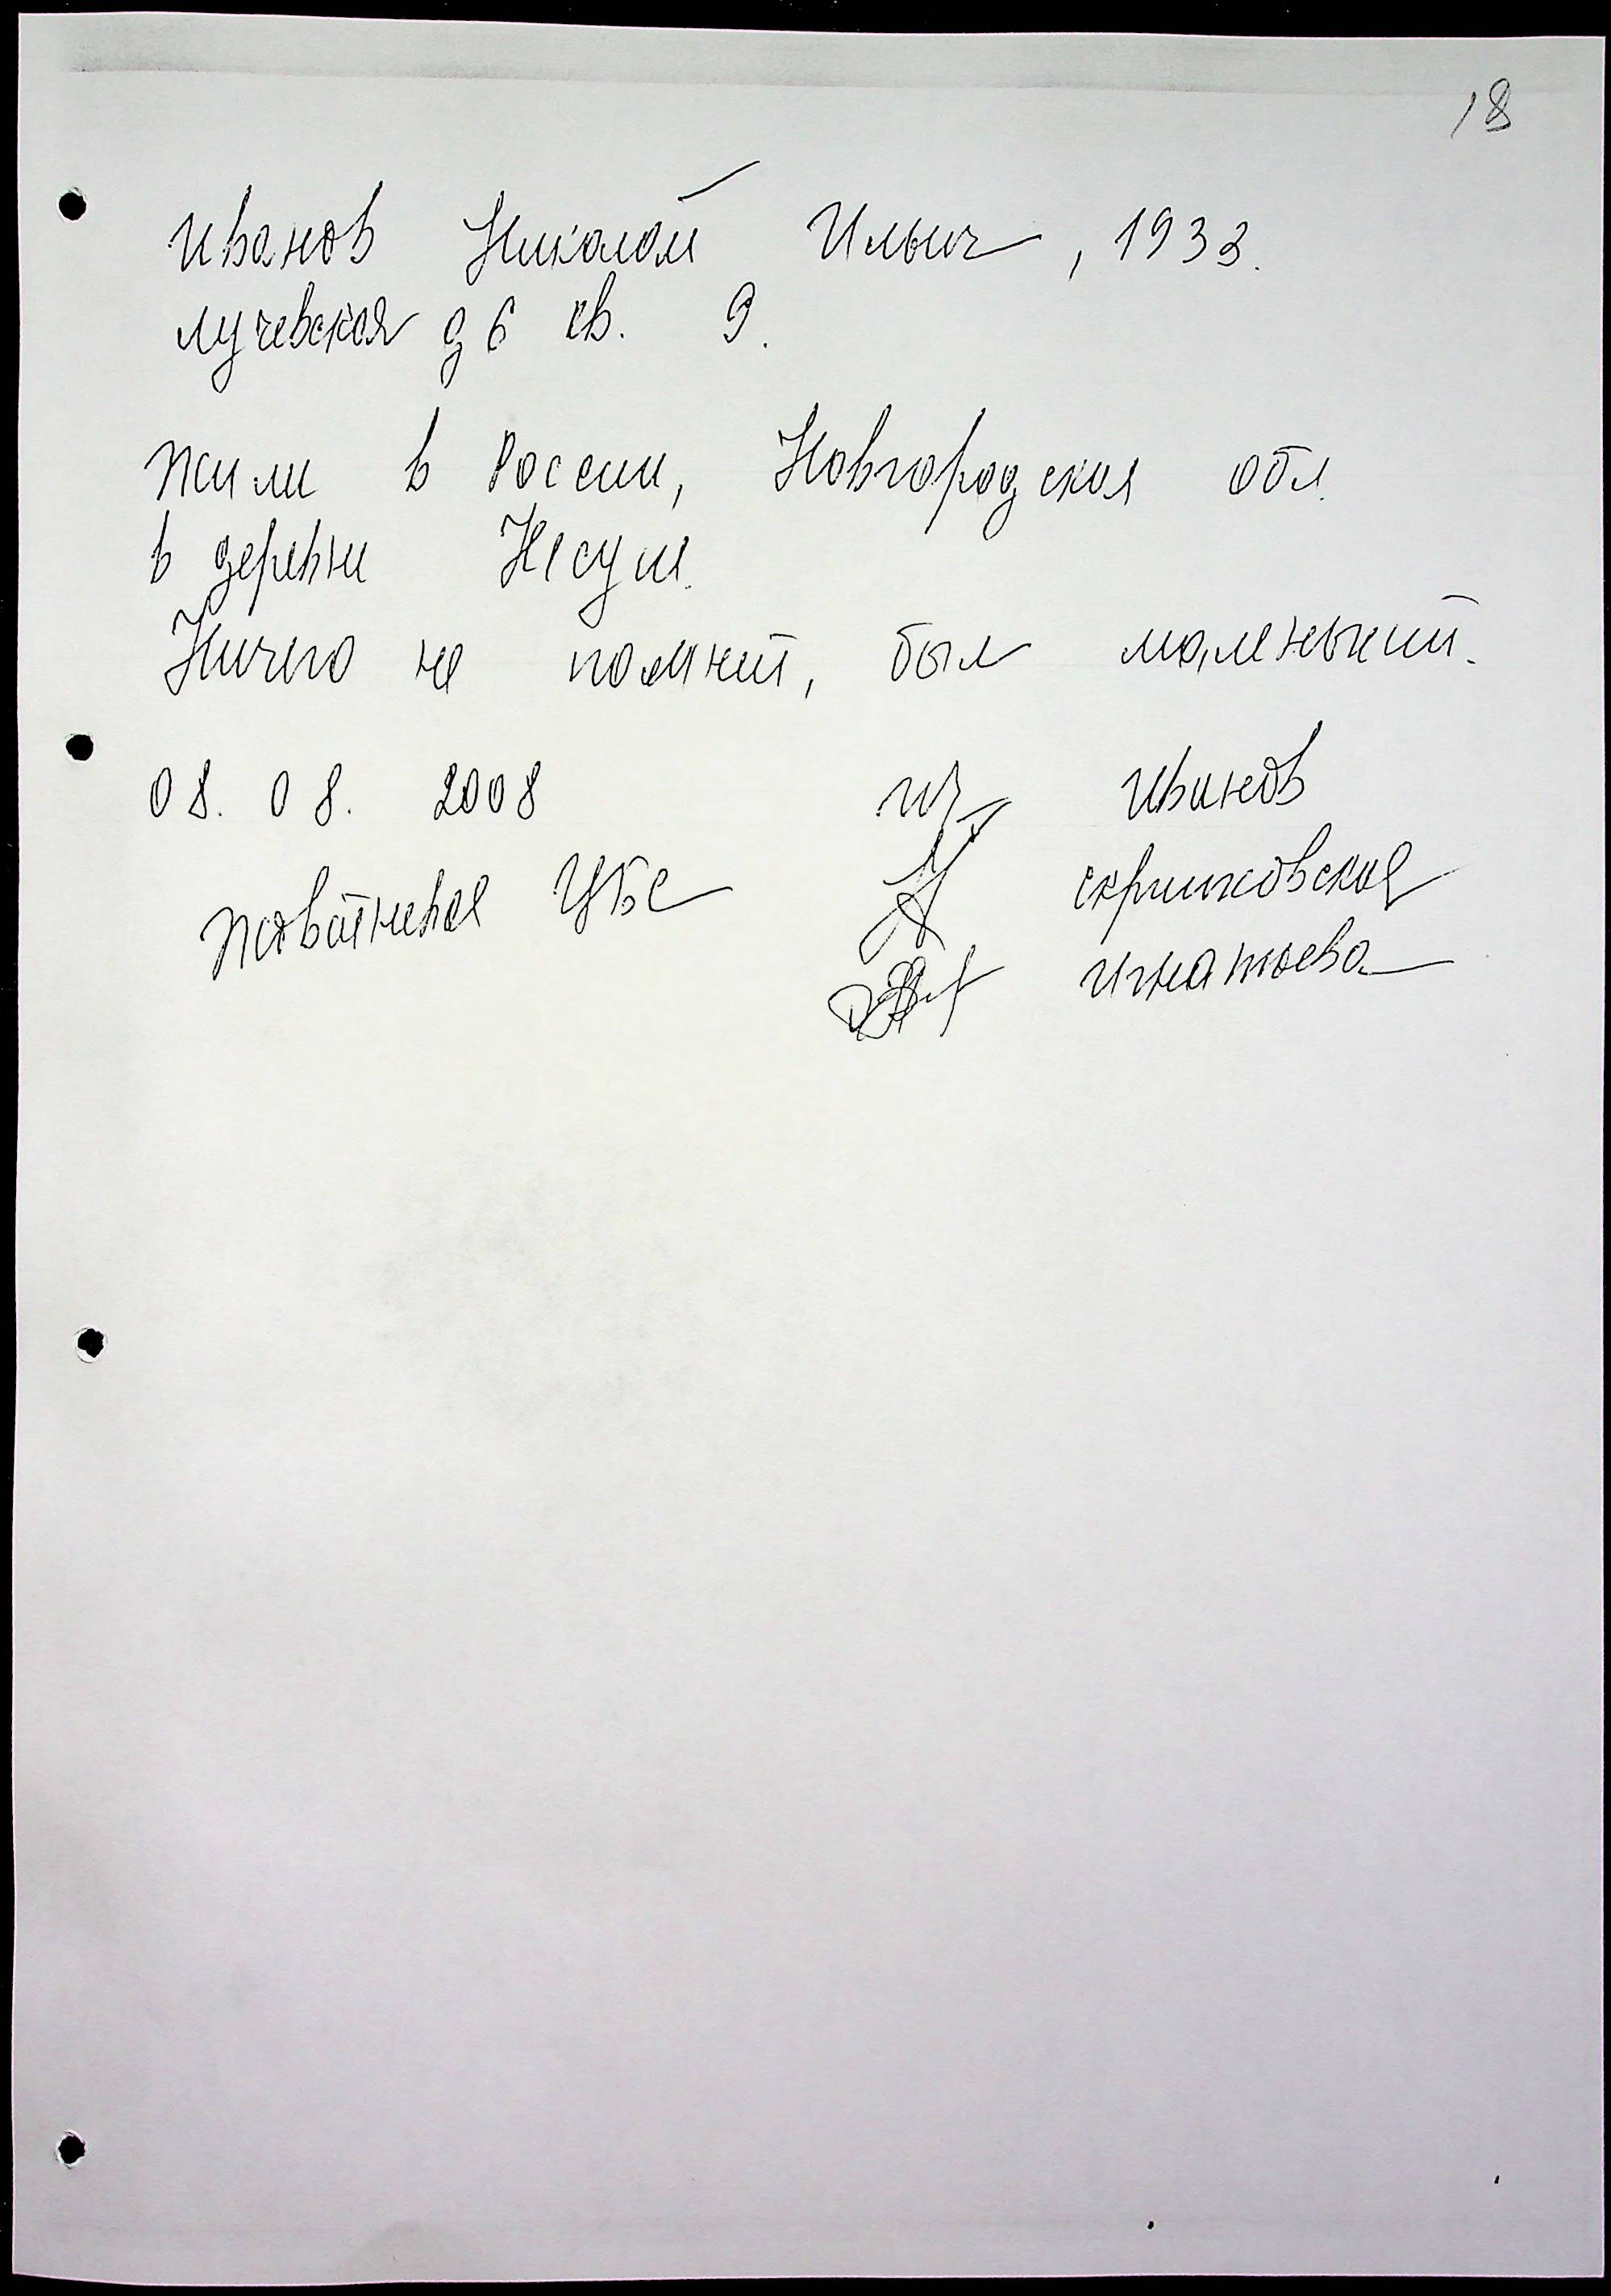 18
Иванов Николай Ильич, 1933.
Лучевская д 6 кв. 9.
Жили в России, Новгородская обл.
в деревни
Ничего не помнит, был маленький.
08. 08. 2008 Иванов
ЦБС
Игнатьева